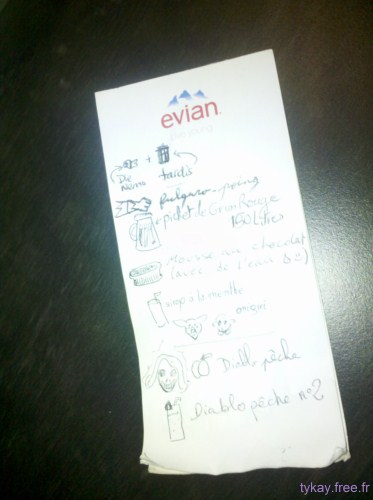 evian
Die Nemo + tardis
fulguro-poing
pichet de GrenRouge
150 Litres
Mousse au chocolat
(avec de l'eau
sirop à la menthe
origini
Diablo pêche
Diablo pêche n°2
tykay.free.fr